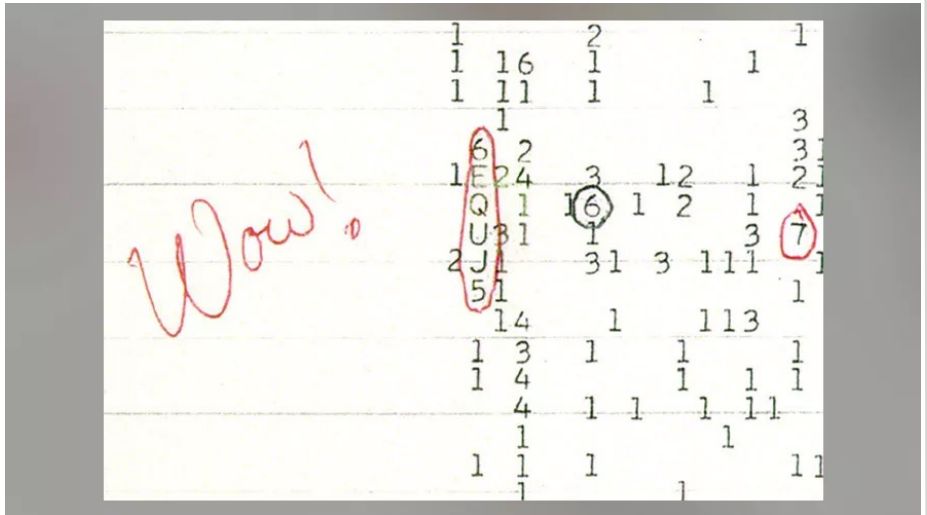 1 2 1
1 16 1 1
1 11 1 1
1 3
6 2 31
1E24 3 12 1 21
Q 1 16 1 2 1 1
U31 1 3 7
Wow!
2J1 31 3 111 1
51 1
14 1 113
1 3 1 1 1
1 4 1 1 1
4 1 1 1 11
1 1
1 1 1 11
1 1